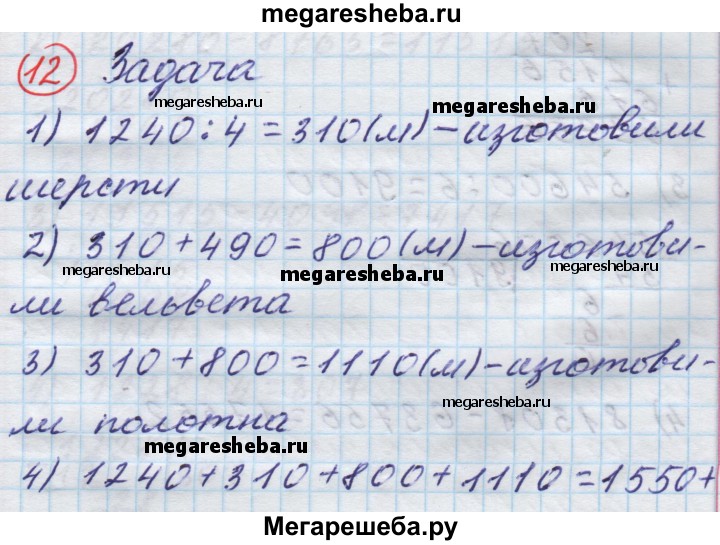 megaresheba.ru
12 Задача
megaresheba.ru megaresheba.ru
1) 1240:4=310(м)-изготовили
шерсти
2) 310+490=800(м)-изготови-
megaresheba.ru megaresheba.ru megaresheba.ru
ли вельвета
3) 310+800=1110(м)-изготови-
megaresheba.ru
ли полотна
megaresheba.ru
4) 1240+310+800+1110=1550+
Мегарешеба.ру